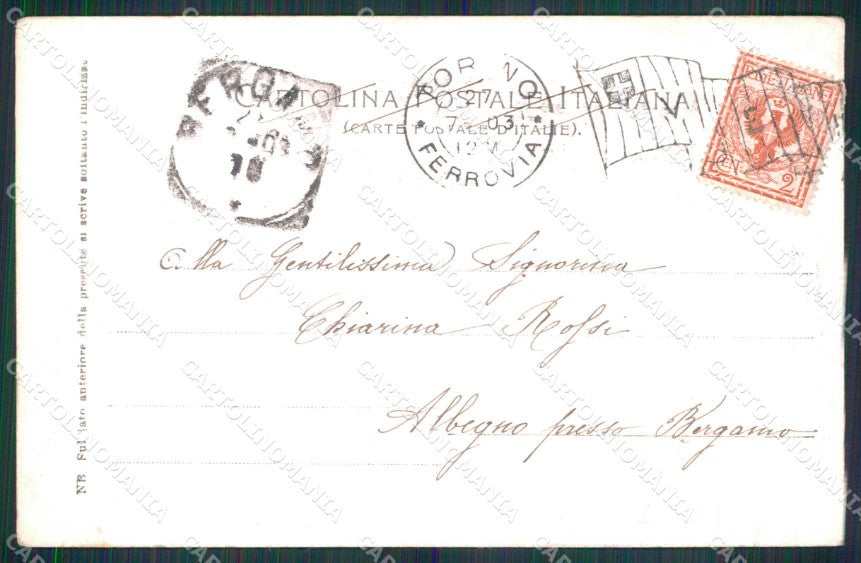 CARTOLINA POSTALE ITALIANA
(CARTE POSTALE D'ITALIE).
BERGAMO
TORINO
27
7 03
12
* FERROVIA *
CENT 2
Alla Gentilissima Signorina
Chiarina Rossi
Albegno presso Bergamo
NB. Sul lato anteriore della presente si scrive soltanto l'indirizzo
CARTOLINOMANIA